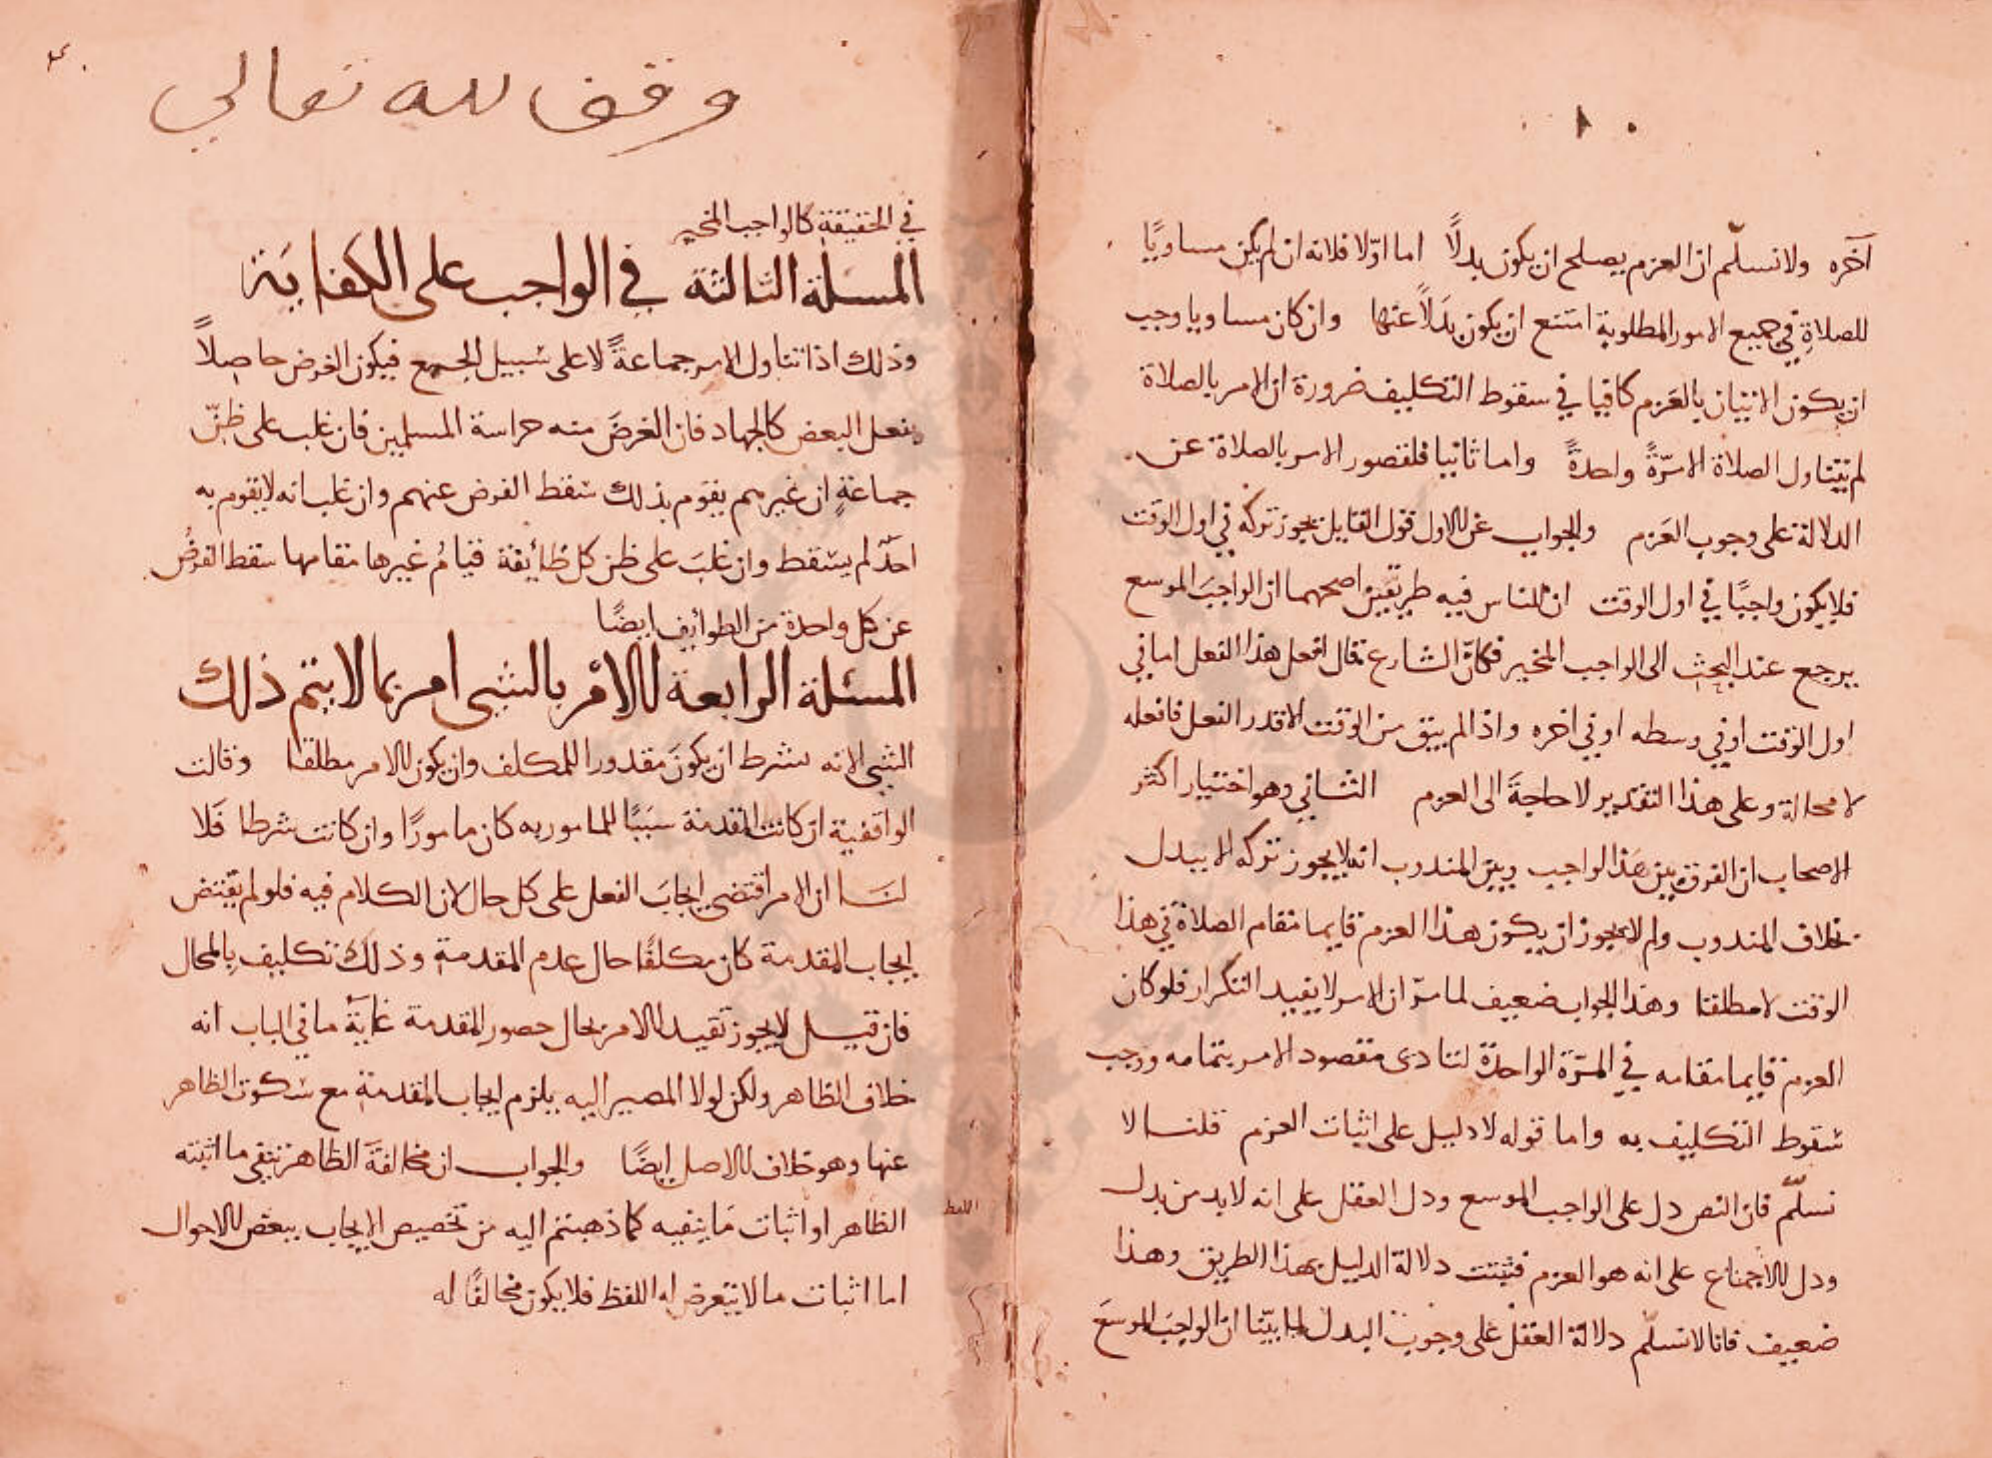 آخره ولا نسلّم ان العزم يصلح ان يكون بدلًا اما اوّلا فلانه ان لم يكن مساويًا
للصلاةِ في جميع الامور المطلوبة امتنع ان يكون بدَلًا عنها وان كان مساويا وجب
ان يكون الاتيان بالعَزم كافيا في سقوط التكليف ضرورة ان الامر بالصلاة
لم يتناول الصلاة الا مرّةً واحدةً واما ثانيا فلقصور الامر بالصلاة عن
الدلالة على وجوب العَزم والجواب عن الاول قول القايل يجوز تركه في اول الوقت
فلا يكون واجبًا في اول الوقت ان للناس فيه طريقين اصحهما ان الواجبَ الموسع
يرجع عند البحث الى الواجب المخير فكانّ الشارع قال افعل هذا الفعل اما في
اول الوقت او في وسطه او في اخره واذا لم يبق من الوقت الا قدر الفعل فافعله
لا محالة وعلى هذا التقدير لا حاجةَ الى العزم الثاني وهو اختيار اكثر
الاصحاب ان الفرق بين هَذا الواجب وبين المندوب انه لا يجوز تركه الا ببدل
بخلاف المندوب ولم لا يجوز ان يكون هذا العزم قايما مقام الصلاة في هذا
الوقت لا مطلقا وهذا الجواب ضعيف لما مرّ ان الامر لا يفيد التكرار فلو كان
العزم قايما مقامه في المرّة الواحدة لتادى مقصود الامر بتمامه ووجب
سُقوط التكليف به واما قوله لا دليل على اثبات العزم قلنا لا
نسلّم فان النص دل على الواجب الموسع ودل العقل على انه لا بد من بدل
ودل الاجماع على انه هو العزم فثبتت دلالة الدليل بهذا الطريق وهذا
ضعيف فانا لا نسلّم دلالة العقل على وجوب البدل لما بيّنا ان الواجبَ الموسعَ
وقف لله تعالى
في الحقيقة كالواجب المخير
المسلة الثالثة في الواجب على الكفايَة
وذلك اذا تناول الامر جماعةً لا على سَبيل الجمع فيكون الغرض حاصلًا
بفعل البعض كالجهاد فان الغرضَ منه حراسة المسلمين فان غلب على ظنّ
جماعةٍ ان غيرهم يقوم بذلك سَقط الفرض عنهم وان غلب انه لا يقوم به
احدٌ لم يسقط وان غلبَ على ظن كل طائفة قيامُ غيرها مقامها سقط الفرضُ
عن كل واحدة من الطوايف ايضًا
المسئلة الرابعة الامر بالشي امر بما لا يتم ذلك
الشي الا به بشرط ان يكونَ مقدورا للمكلف وان يكون الامر مطلقا وقالت
الواقفية ان كانت المقدمة سَببًا للمامور به كان مامورًا وان كانت شرطا فَلا
لنَا ان الامر اقتضى ايجابَ الفعل على كل حال لان الكلام فيه فلو لم يقتض
ايجاب المقدمة كان مكلفًا حال عدم المقدمة وذلك تكليف بالمحال
فان قيل لا يجوز تقييد الامر بحال حصور المقدمة غايَة ما في الباب انه
خلاف الظاهر ولكن لولا المصير اليه يلزم ايجاب المقدمة مع سُكوت الظاهر
عنها وهو خلاف الاصل ايضًا والجواب ان مخالفةَ الظاهر نفي ما اثبته
الظاهر او اثبات مَا ينفيه كما ذهبتم اليه من تخصيص الايجاب ببعض الاحوال
اما اثبات ما لا يتعرض له اللفظ فلا يكون مخالفًا له